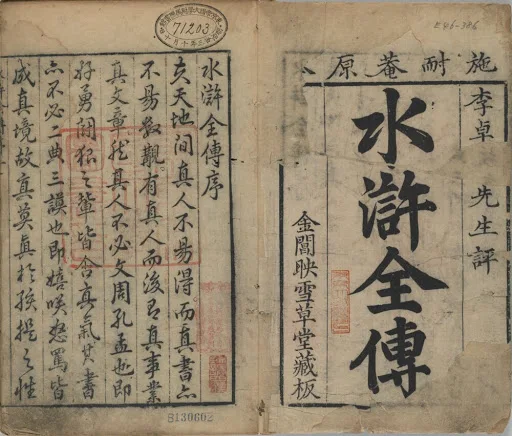 施耐菴原
李卓 先生評
水滸全傳
金閶映雪草堂藏板
水滸全傳序
夫天地間真人不易得而真書亦
不易數覯有真人而後有真事業
真文章然其人不必文周孔孟也即
好勇鬪狠之輩皆含真氣其書
亦不必二典三謨也即嬉咲怒罵皆
成真境故真莫真於孩提之性
71203
B130602